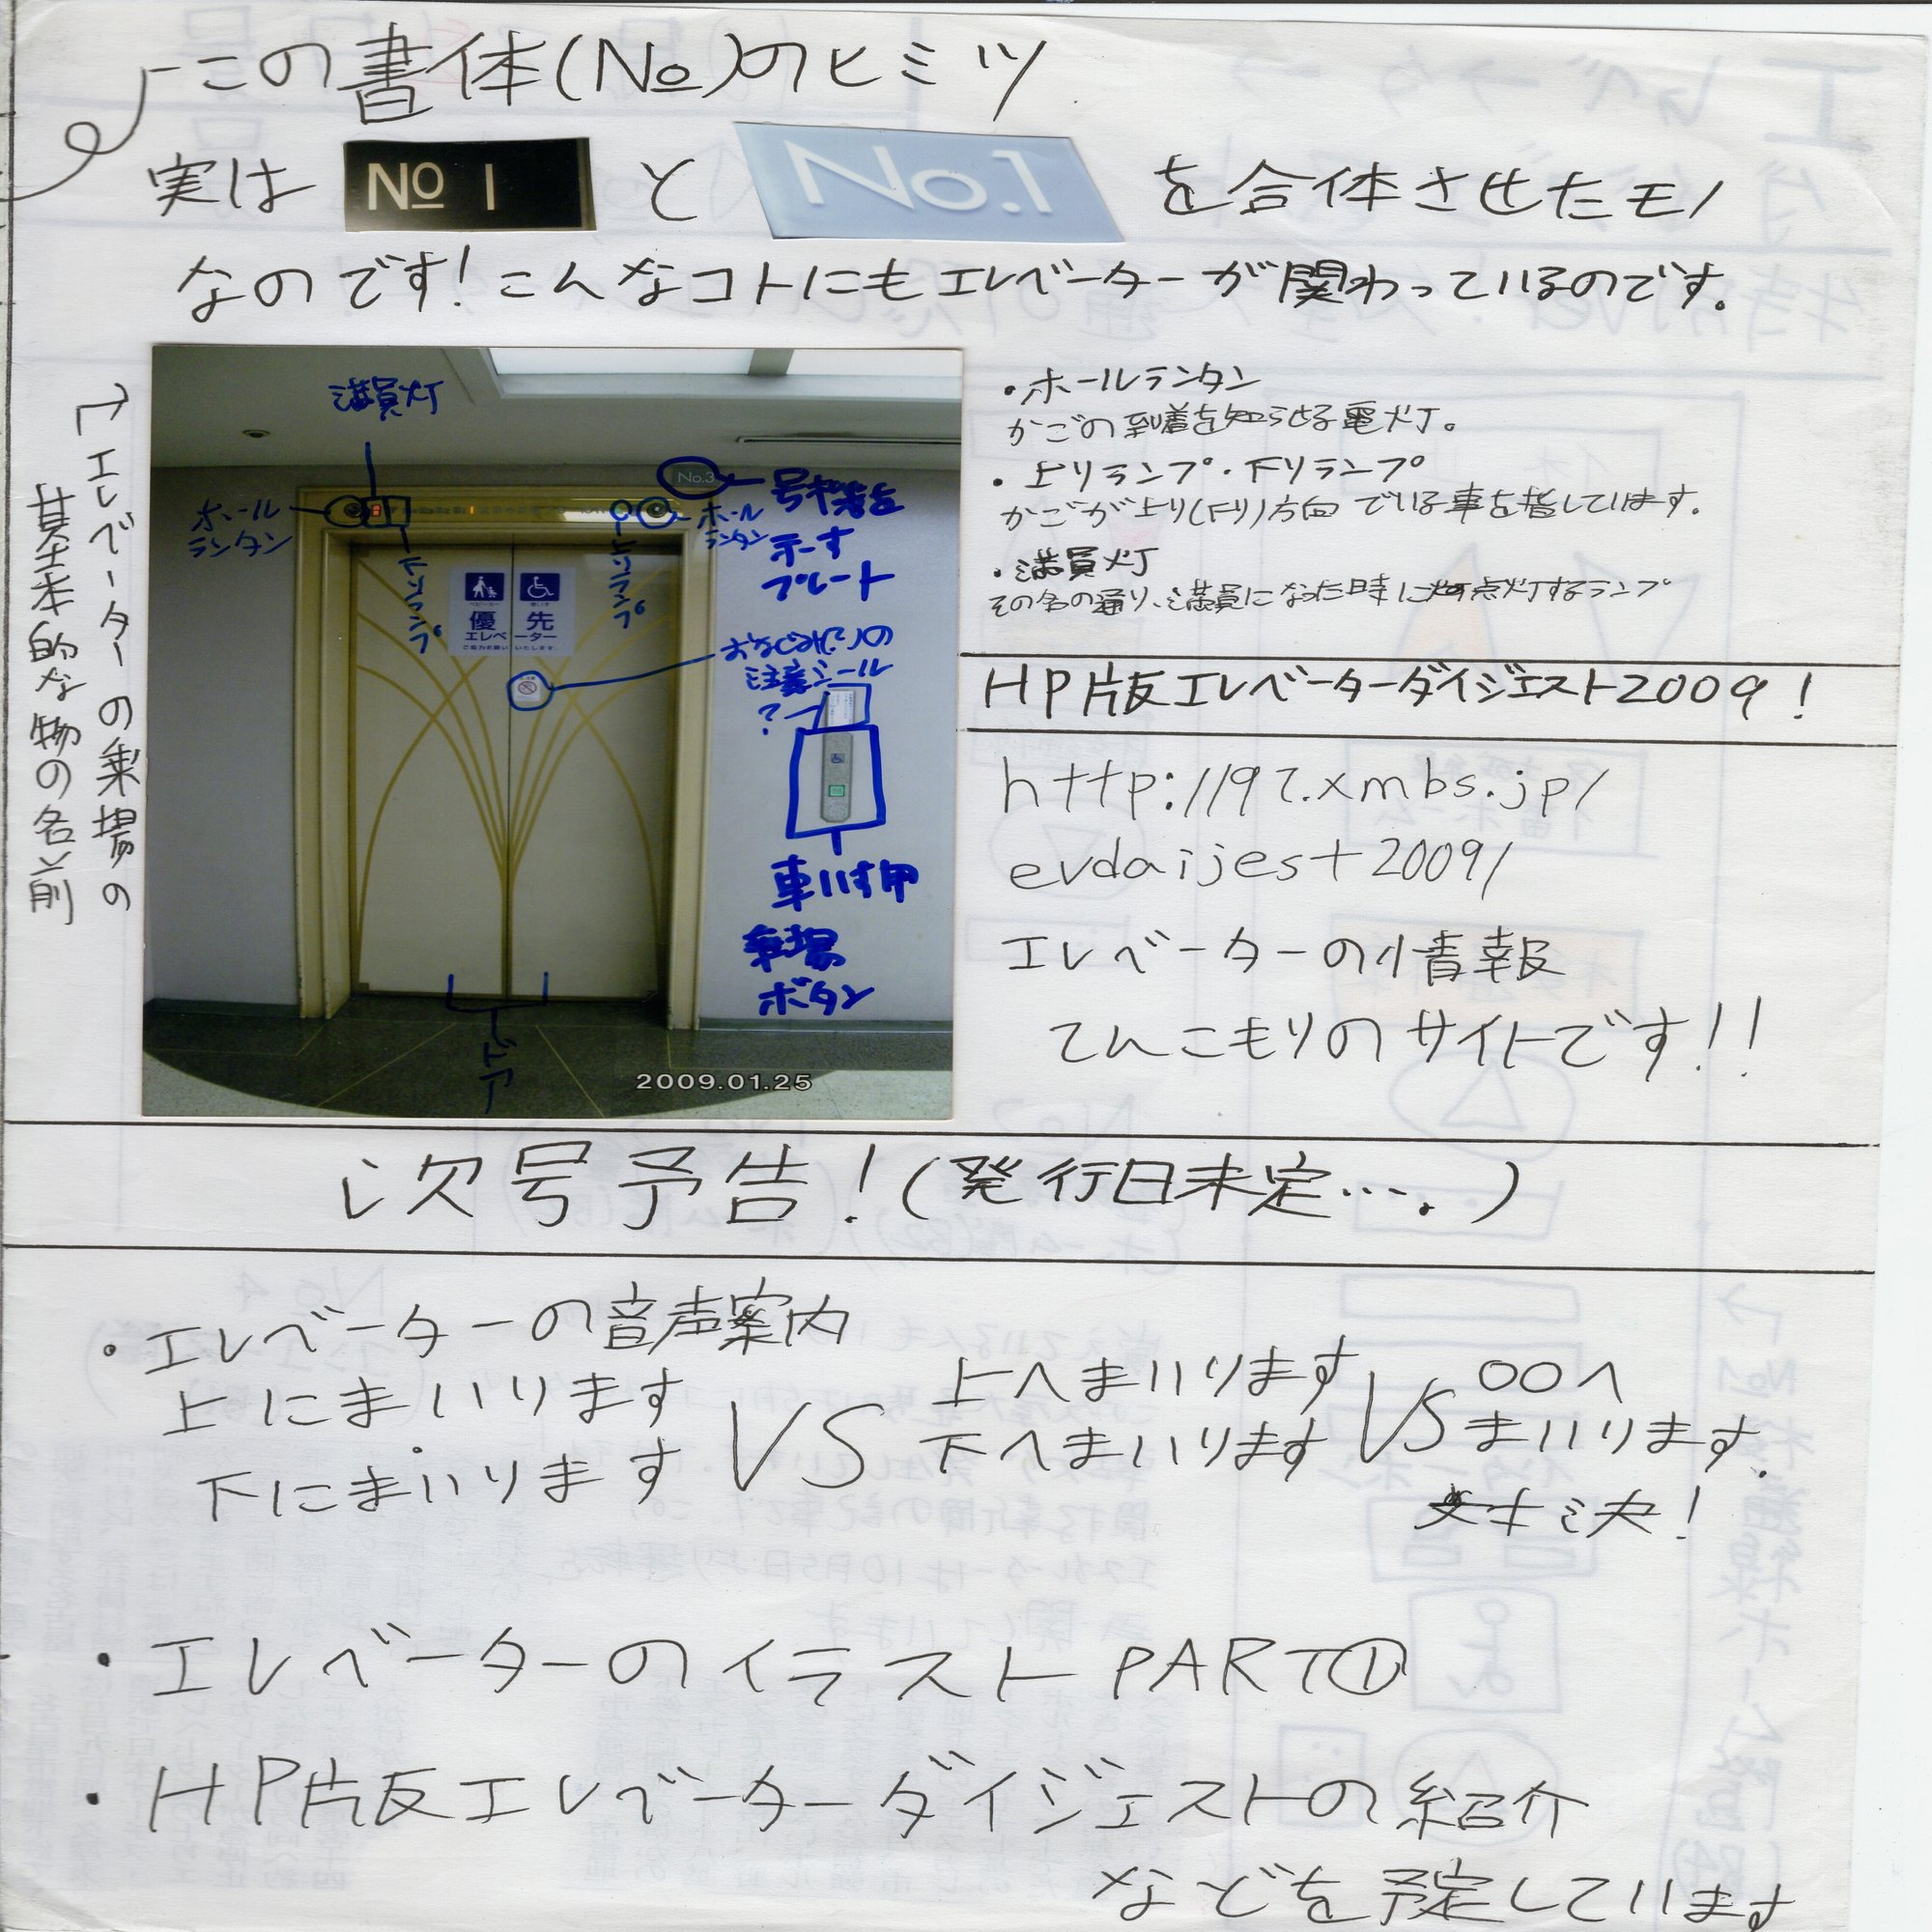 この書体(№)のヒミツ
実は № 1 と No.1 を合体させたモノ
なのです！こんなコトにもエレベーターが関わっているのです。
→エレベーターの乗場の
基本的な物の名前
満員灯
ホール
ランタン
下りランプ
上りランプ
ホール
ランタン
No.3
号機を
示す
プレート
ベビーカー
車いす
優先
エレベーター
ご協力お願いいたします。
おなじみ?の
注意シール
?
車いす用
乗場
ボタン
ドア
2009.01.25
・ホールランタン
かごの到着を知らせる電灯。
・上りランプ・下りランプ
かごが上り(下り)方向でいる事を指しています。
・満員灯
その名の通り、満員になった時に点灯するランプ
HP版エレベーターダイジェスト2009！
http://97.xmbs.jp/
evdaijest2009/
エレベーターの情報
てんこもりのサイトです！！
次号予告！(発行日未定….)
・エレベーターの音声案内
上にまいります
下にまいります
VS
上へまいります
下へまいります
VS
○○へ
まいります。
対決！
・エレベーターのイラストPART①
・HP版エレベーターダイジェストの紹介
などを予定しています